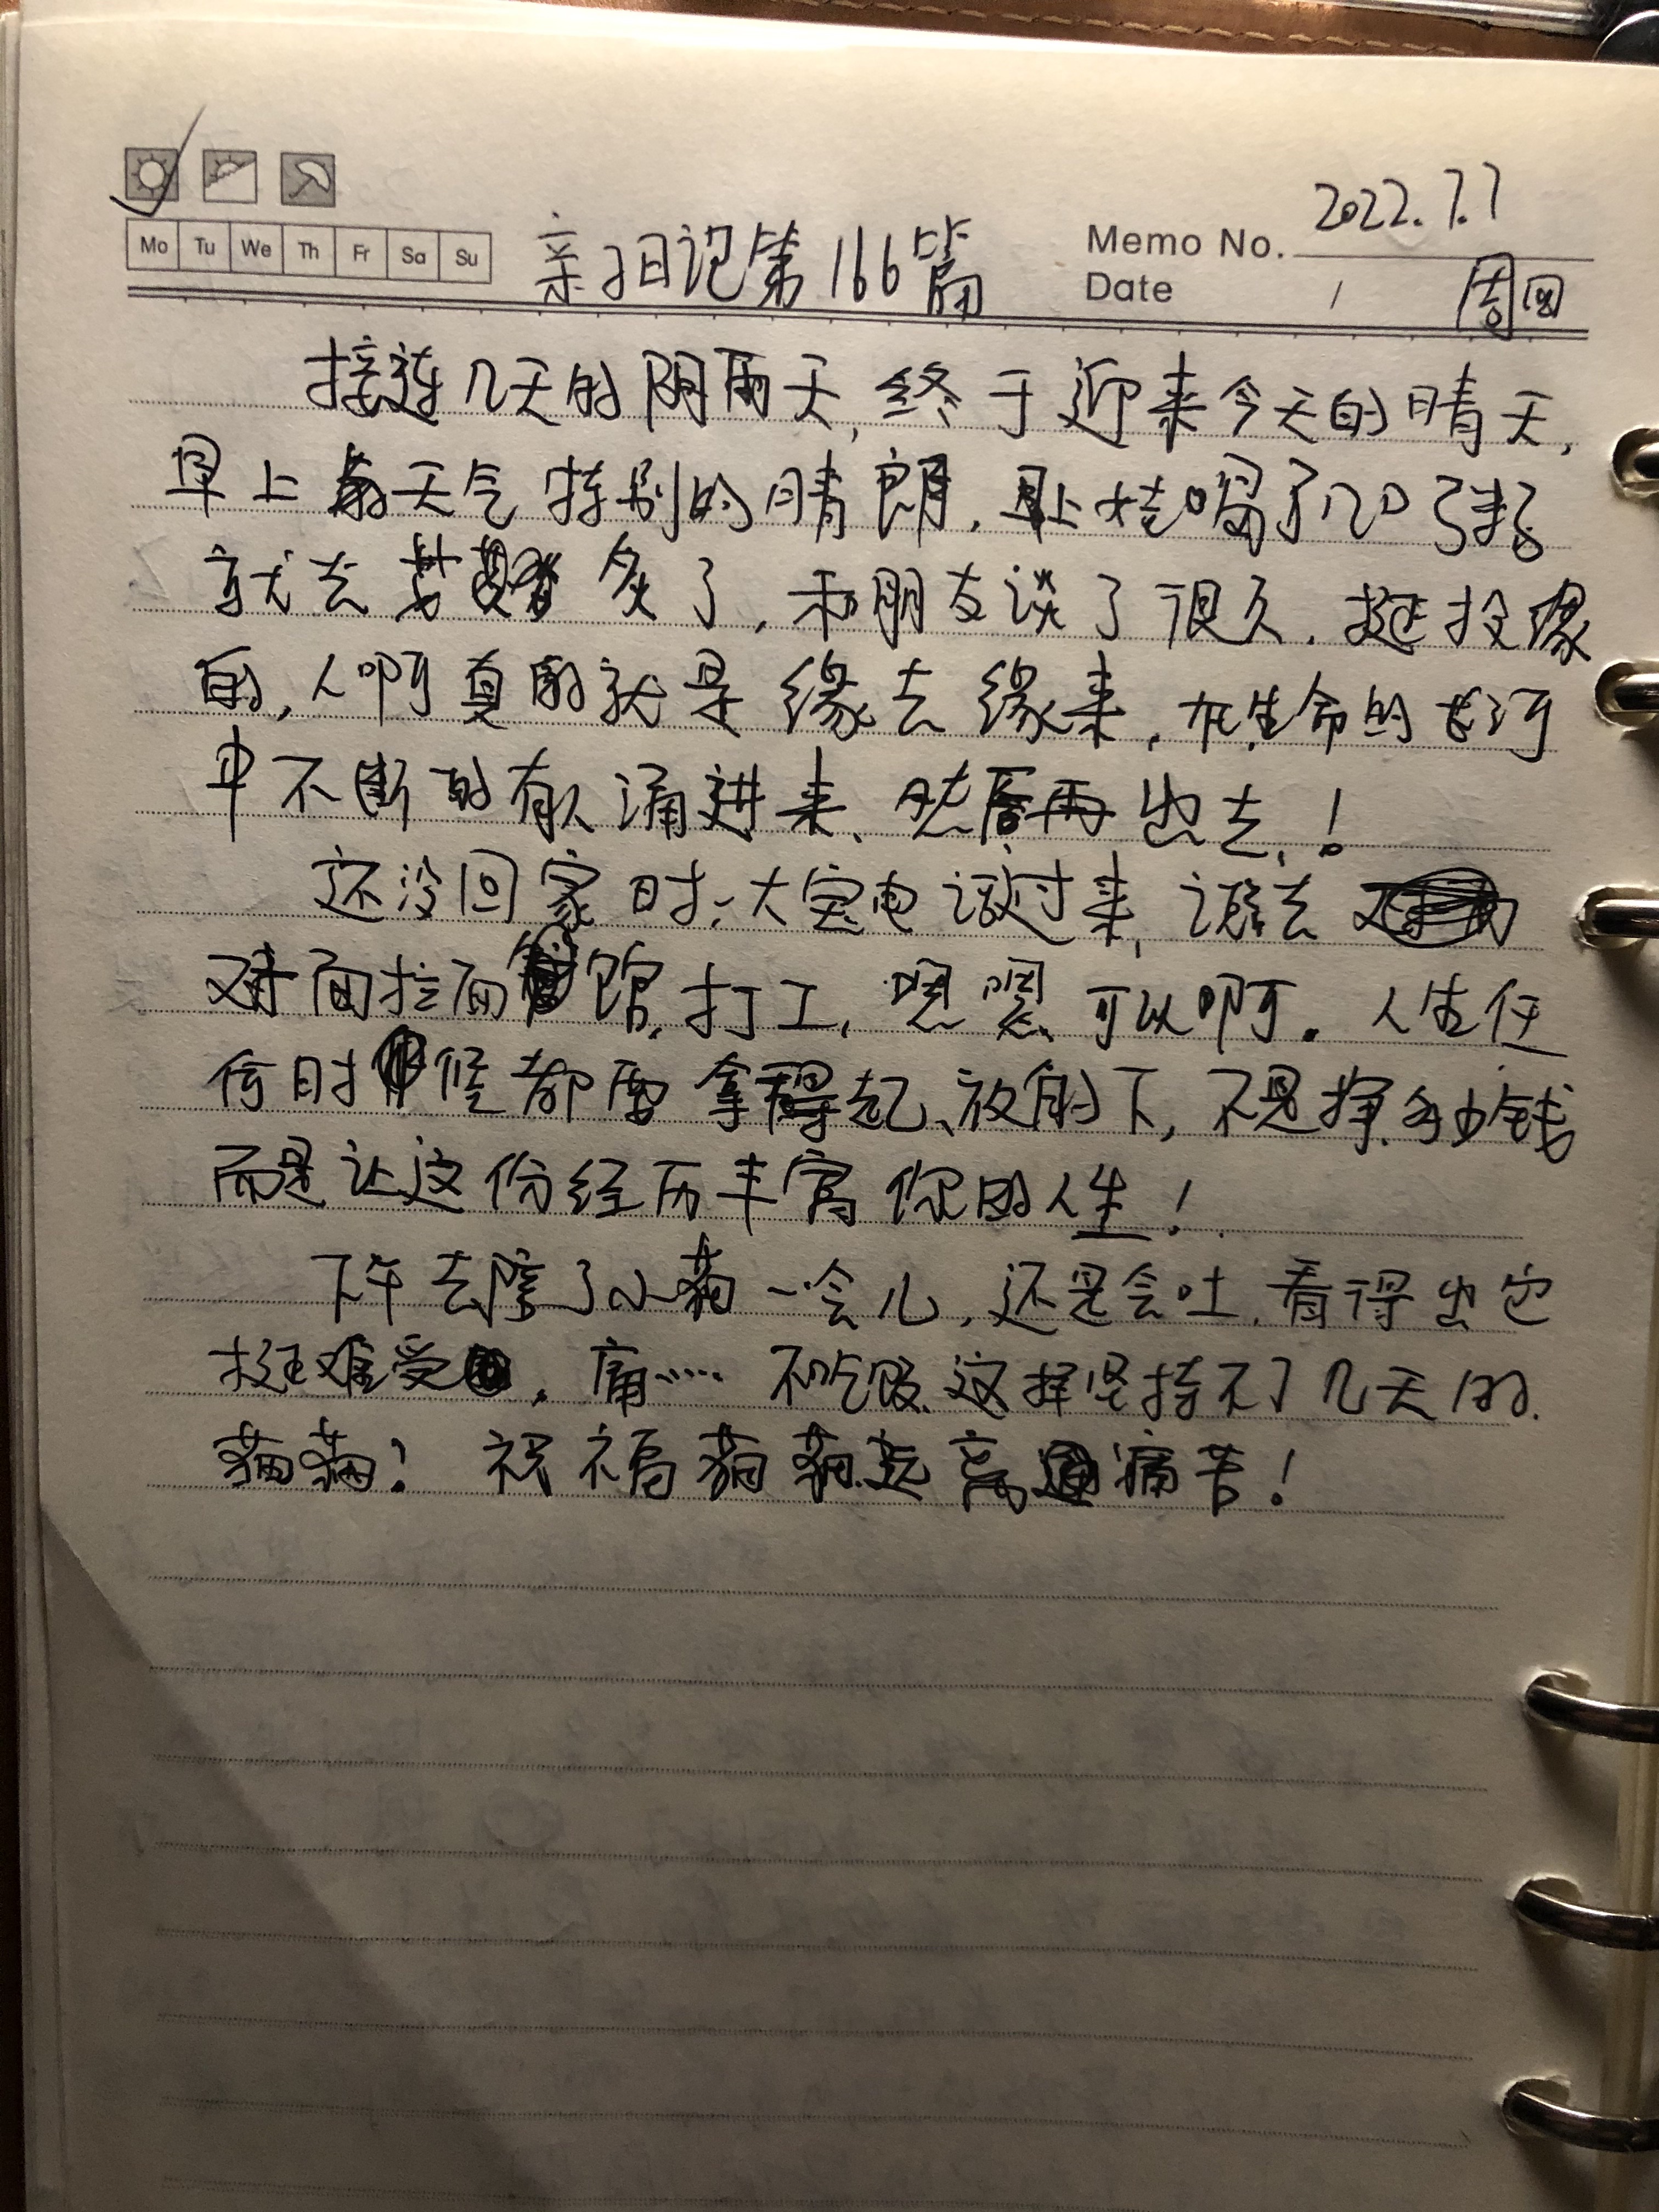 2022.7.7
Mo Tu We Th Fr Sa Su 亲子日记第166篇 Memo No.
Date / 周四
接连几天的阴雨天,终于迎来今天的晴天,
早上的天气特别的晴朗,早上烧喝了几口了粥
就去艾灸了,和朋友谈了很久,挺投缘
的,人啊真的就是缘去缘来,在生命的长河
中不断的有人涌进来、然后再出去,!
还没回家时,大宝电话过来,说去
对面拉面馆打工,嗯嗯、可以啊。人生任
何时候都要拿得起、放的下,不是挣多少钱
而是让这份经历丰富你的人生!
下午去陪了小猫一会儿,还是会吐,看得出它
挺难受,痛…… 不吃饭这样坚持不了几天的
猫猫!祝福猫猫远离痛苦!